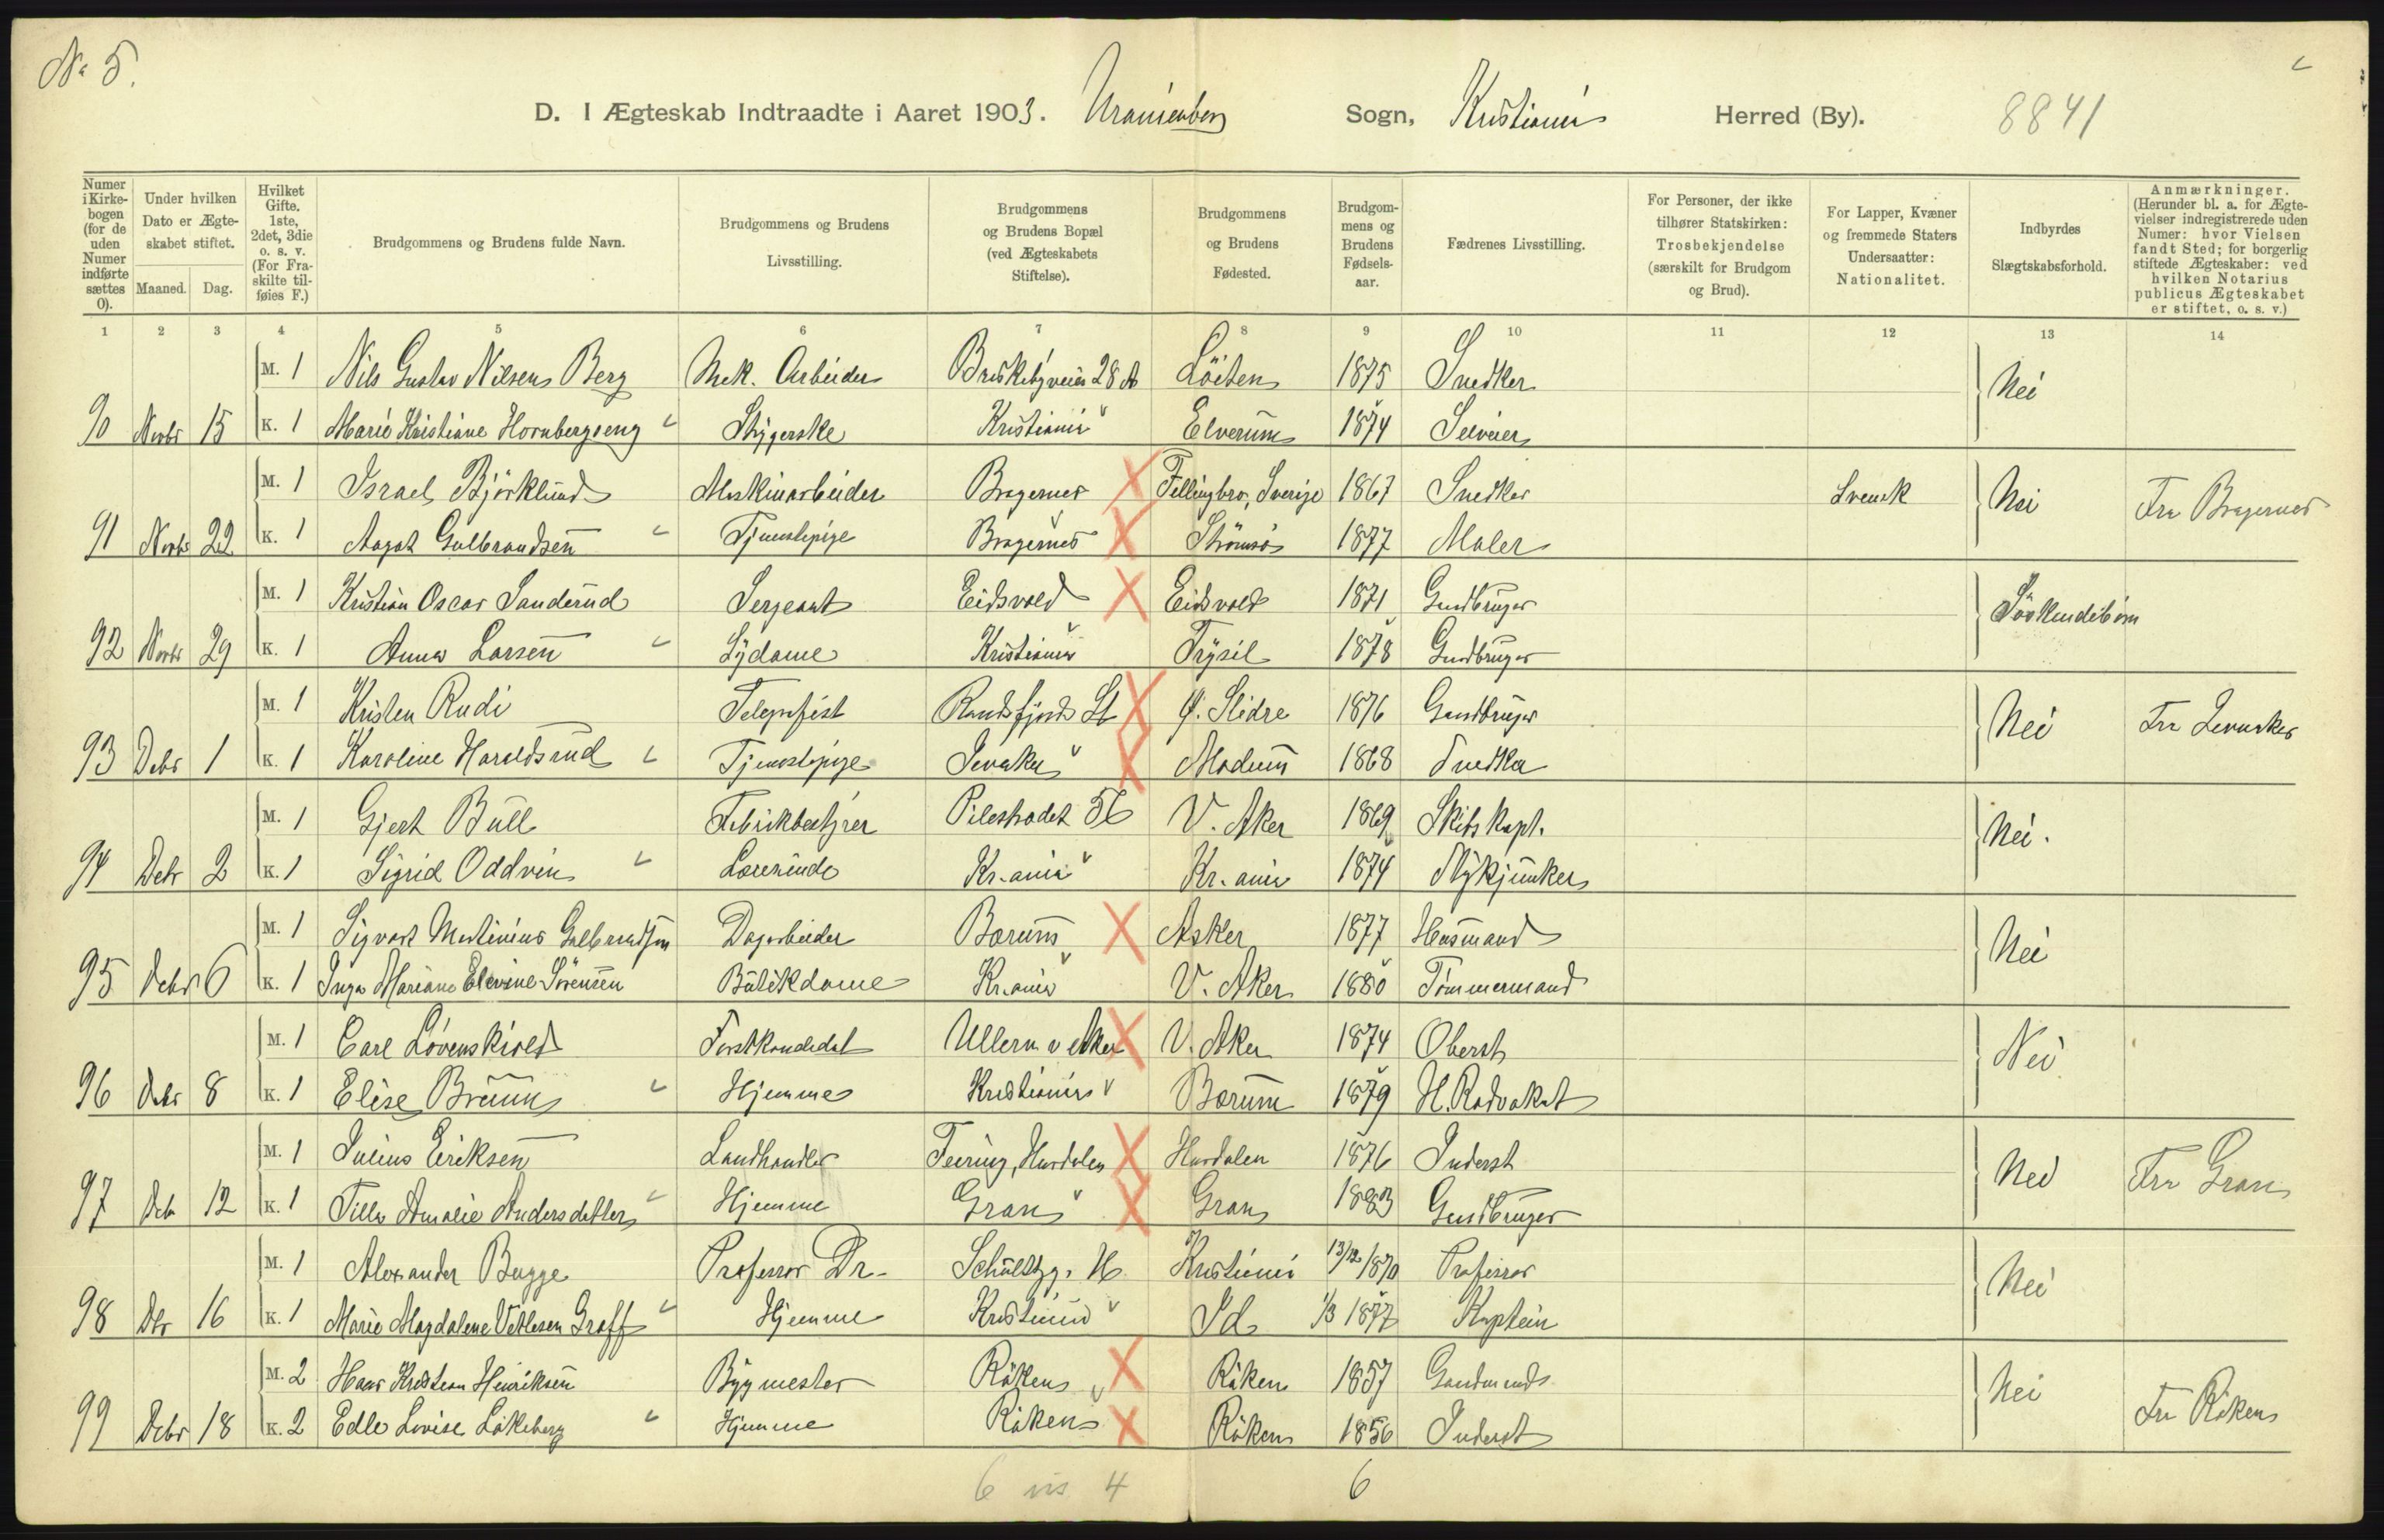 No 5.
D. I Ægteskab Indtraadte i Aaret 1903. Uranienborg Sogn, Kristiania Herred (By). 8841
Numer i Kirkebogen (for de uden Numer indførte sættes 0).
Under hvilken Dato er Ægteskabet stiftet.
Maaned. Dag.
Hvilket Gifte. 1ste, 2det, 3die o. s. v. (For Fraskilte tilføies F.)
Brudgommens og Brudens fulde Navn.
Brudgommens og Brudens Livsstilling.
Brudgommens og Brudens Bopæl (ved Ægteskabets Stiftelse).
Brudgommens og Brudens Fødested.
Brudgommens og Brudens Fødselsaar.
Fædrenes Livsstilling.
For Personer, der ikke tilhører Statskirken: Trosbekjendelse (særskilt for Brudgom og Brud).
For Lapper, Kvæner og fremmede Staters Undersaatter: Nationalitet.
Indbyrdes Slægtskabsforhold.
Anmærkninger. (Herunder bl. a. for Ægtevielser indregistrerede uden Numer: hvor Vielsen fandt Sted; for borgerlig stiftede Ægteskaber: ved hvilken Notarius publicus Ægteskabet er stiftet, o. s. v.)
1 2 3 4 5 6 7 8 9 10 11 12 13 14
M. 1 Nils Gustav Nilsen Berg Mek. Arbeider Briskebyveien 28 A Löiten 1875 Snedker Nei
90 Novbr 15 K. 1 Marie Kristiane Hornbergseng Strygerske Kristiania Elverum 1874 Selveier
M. 1 Israel Björklund Maskinarbeider Bragernes Fellingbro, Sverige 1867 Snedker Svensk Nei Fra Bragernes
91 Novbr 22 K. 1 Aagot Gulbrandsen Tjenestepige Bragernes Strömsö 1877 Maler
M. 1 Kristian Oscar Sanderud Sergeant Eidsvold Eidsvold 1871 Gardbruger Söskendebörn
92 Novbr 29 K. 1 Anna Larsen Sydame Kristiania Trysil 1878 Gardbruger
M. 1 Kristen Rudi Telegrafist Randsfjords St Ø. Slidre 1876 Gardbruger Nei Fra Jevnaker
93 Debr 1 K. 1 Karoline Haraldsrud Tjenestepige Jevnaker Modum 1868 Snedker
M. 1 Gjert Bull Fabrikbestyrer Pilestradet 56 V. Aker 1869 Skibskapt. Nei.
94 Debr 2 K. 1 Sigrid Oddvin Lærerinde Kr.ania Kr.ania 1874 Stykjunker
M. 1 Sigvart Martinius Gulbrandsen Dagarbeider Bærum Asker 1877 Husmand Nei
95 Debr 6 K. 1 Inga Mariane Elevine Sörensen Butikdame Kr.ania V. Aker 1880 Tömmermand
M. 1 Carl Lövenskiold Forstkandidat Ullern v Aker V. Aker 1874 Oberst Nei
96 Debr 8 K. 1 Elise Bruun Hjemme Kristiania Bærum 1879 H.Radvokat
M. 1 Julius Eriksen Landhandler Feiring, Hurdalen Hurdalen 1876 Inderst Nei Fra Gran
97 Deb 12 K. 1 Tilla Amalie Andersdatter Hjemme Gran Gran 1883 Gardbruger
M. 1 Alexander Bugge Professor Dr. Schultzg. Kristiania 13/12 1870 Professor Nei
98 Dbr 16 K. 1 Marie Magdalene Vetlesen Graff Hjemme Kristiania Id 1/3 1877 Kaptein
M. 2 Hans Kristian Henriksen Bygmester Röken Röken 1857 Gardmand Nei
99 Debr 18 K. 2 Edle Lovise Lökeberg Hjemme Röken Röken 1856 Inderst Fra Röken
6 4 6